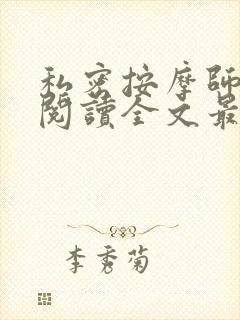 私密按摩師
閱讀全文最
李秀菊